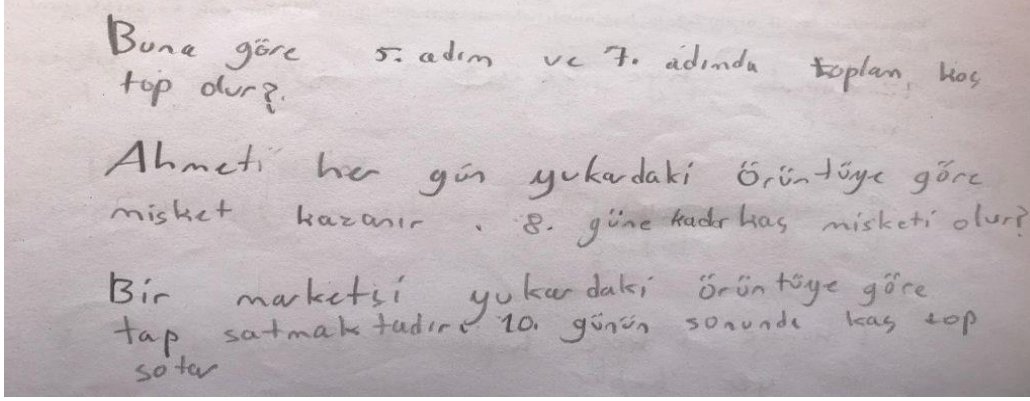 Buna göre 5. adım ve 7. adımda toplan kaç
top olur?.
Ahmeti her gün yukardaki örüntüye göre
misket kazanır . 8. güne kadar kaç misketi olur?
Bir marketçi yukardaki örüntüye göre
tap satmaktadır. 10. günün sonunda kaç top
satar